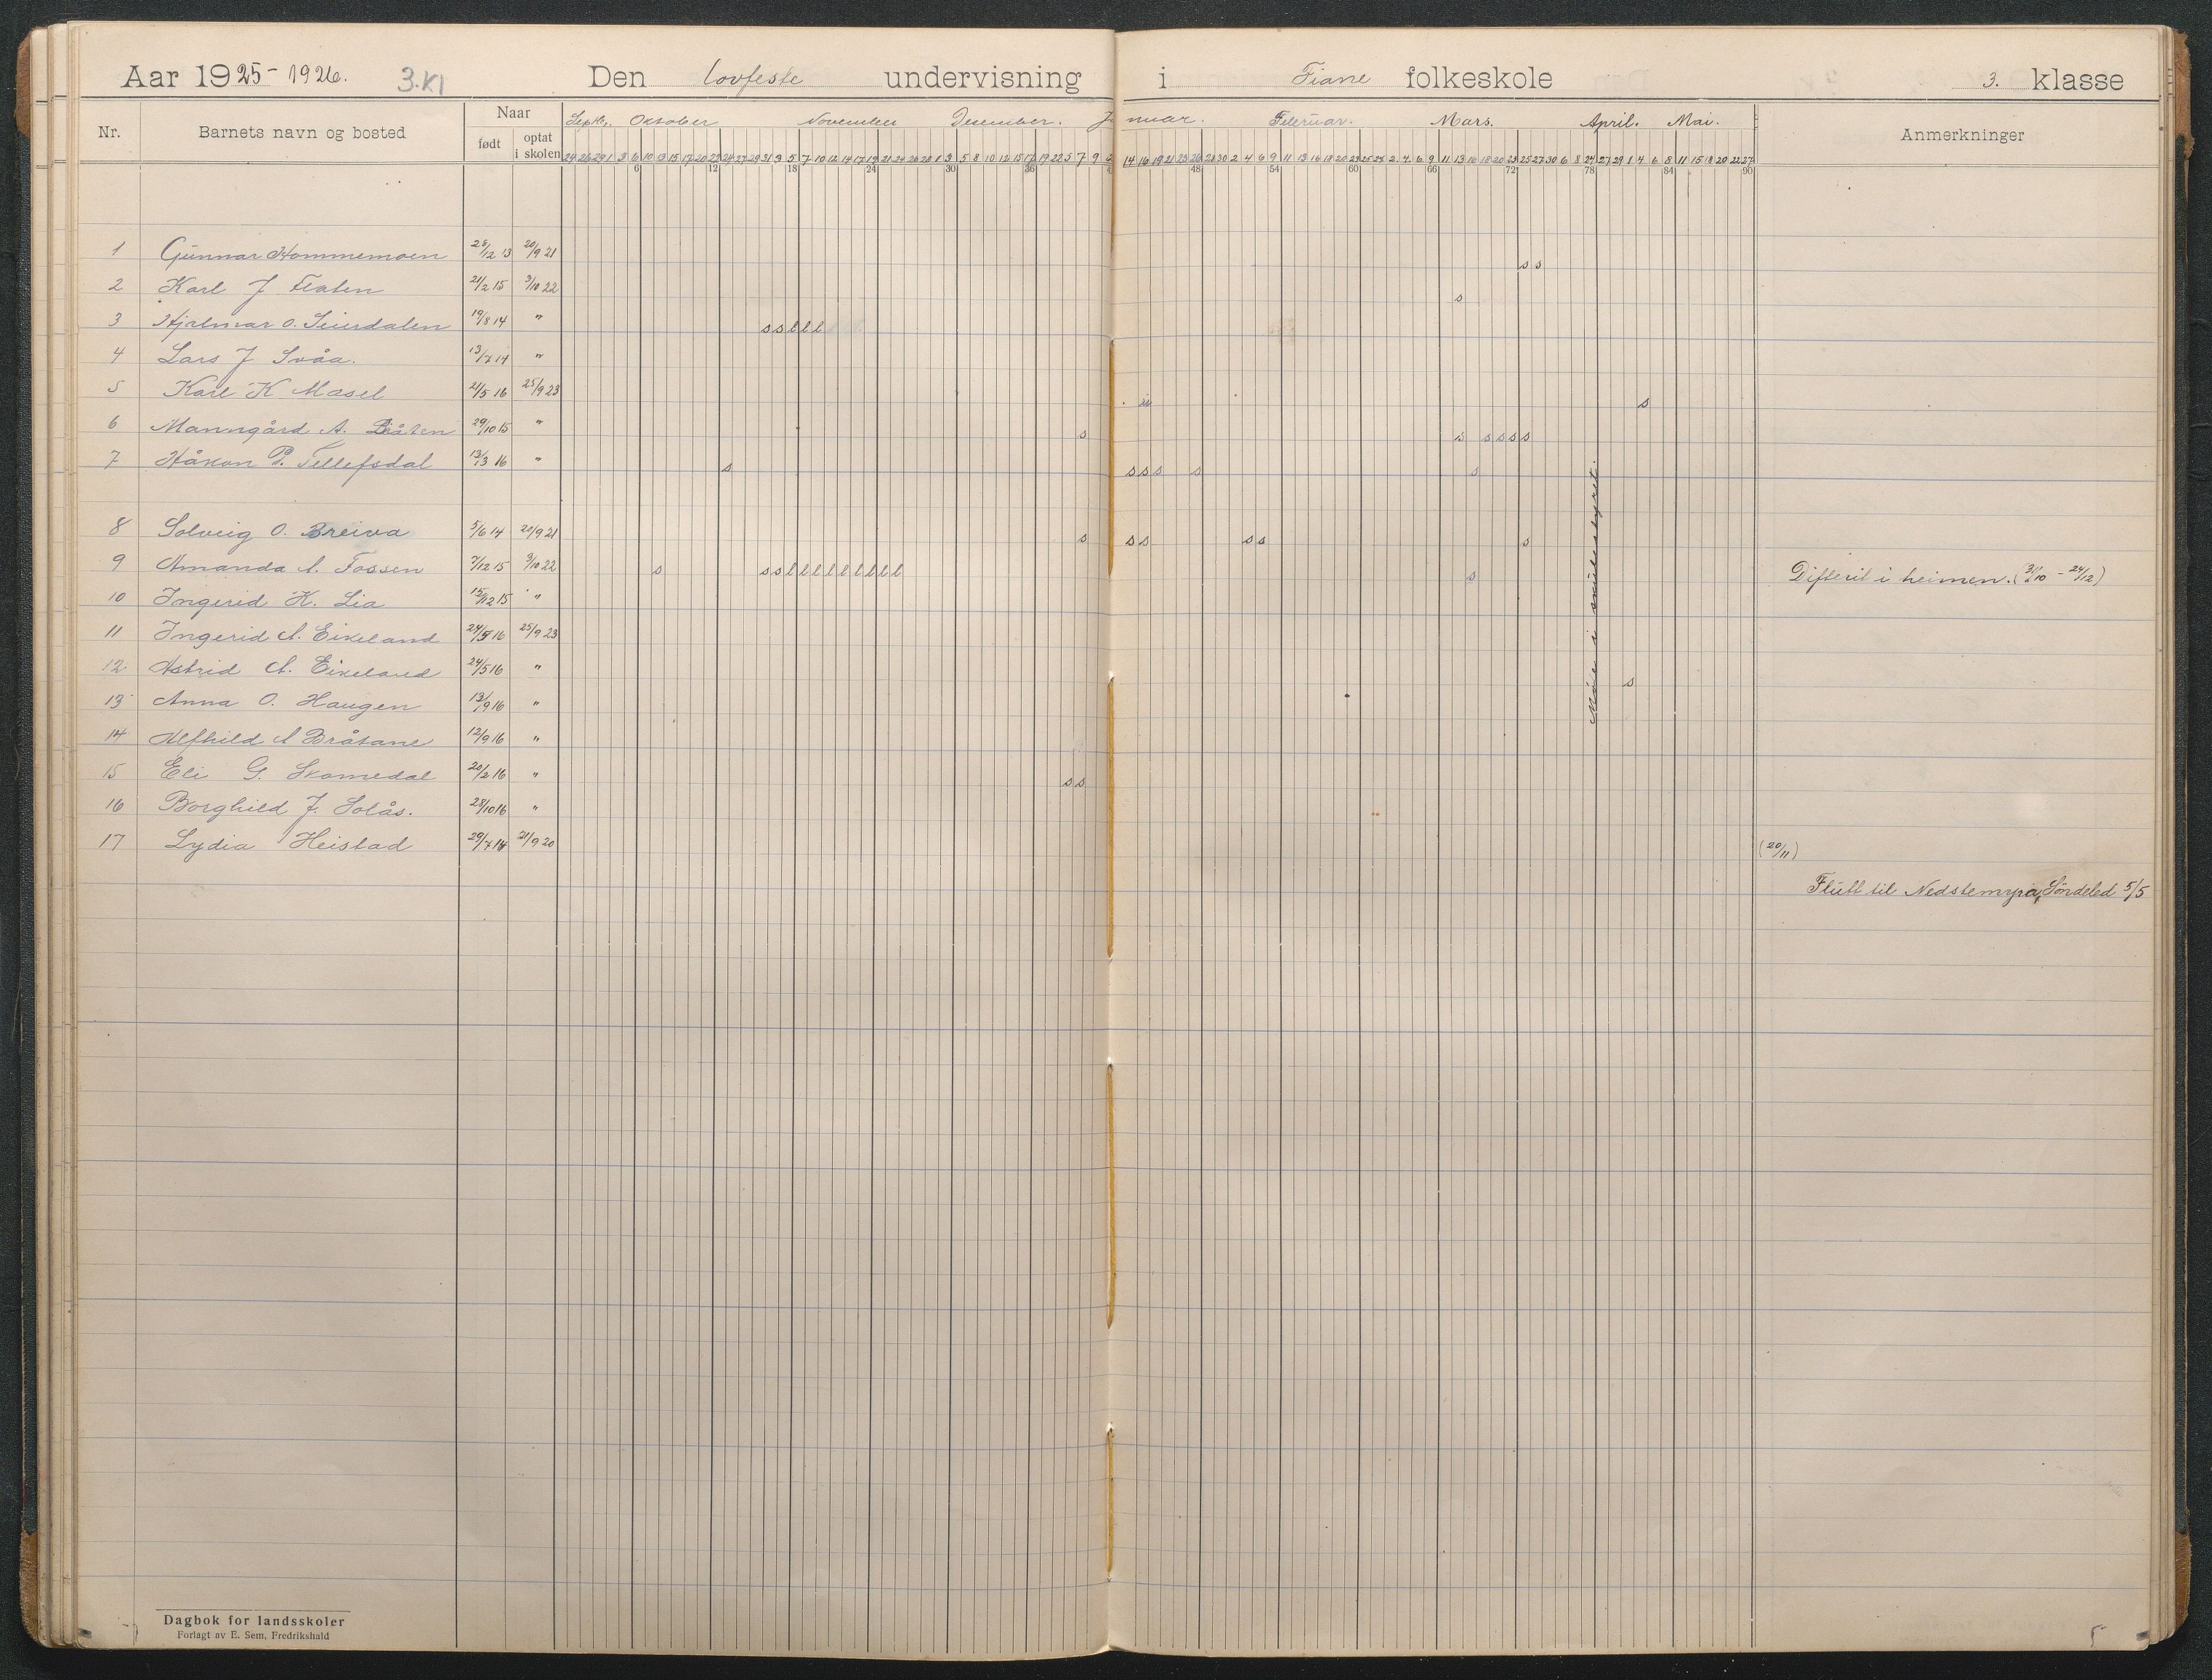 Aar 1925-1926. 3.Kl Den lovfeste undervisning i Fiane folkeskole 3. klasse
Nr. Barnets navn og bosted Naar født optat i skolen Septbr. Oktober November Desember. Januar. Februar. Mars. April. Mai. Anmerkninger
24 26 29 1 3 6 10 13 15 17 20 22 24 27 29 31 3 5 7 10 12 14 17 19 21 24 26 28 1 3 5 8 10 12 15 17 19 22 5 7 9 14 16 19 21 23 26 28 30 2 4 6 9 11 13 16 18 20 23 25 27 2 4 6 9 11 13 16 18 20 23 25 27 30 6 8 24 27 29 1 4 6 8 11 15 18 20 22 27
6 12 18 24 30 36 48 54 60 66 72 78 84 90
1 Gunnar Hommemoen 28/12 13 20/9 21 s s
2 Karl J Flaten 21/2 15 3/10 22 s
3 Hjalmar O. 19/8 14 " s s l l l
4 Lars J Svåa. 13/7 14 "
5 Karl K Masel 21/5 16 25/9 23 s
6 Manngård A. Bråten 29/10 15 " s s s s s s
7 Håkon P. Tellefsdal 13/3 16 " s s s s s s
8 Solveig O. Breiva 5/6 14 20/9 21 s s s s s s
9 Amanda A. Fossen 7/12 15 3/10 22 s s s l l l l l l l l l s Difterit i heimen. (31/10 - 24/12)
10 Ingerid K. Lia 15/12 15 "
11 Ingerid A. Eikeland 24/5 16 25/9 23
12 Astrid A. Eikeland 24/5 16 " s
13 Anna O. Haugen 13/9 16 "
14 Alfhild A Bråtane 12/9 16 "
15 Eli G. Skomedal 20/2 16 " s s
16 Borghild J. Solås. 23/10 16 "
17 Lydia Heistad 29/7 14 21/9 20 (20/11)
Flutt til Nedstemyra, Søndeled 5/5
Møte i skulestyret.
Dagbok for landsskoler
Forlagt av E. Sem, Fredrikshald
5